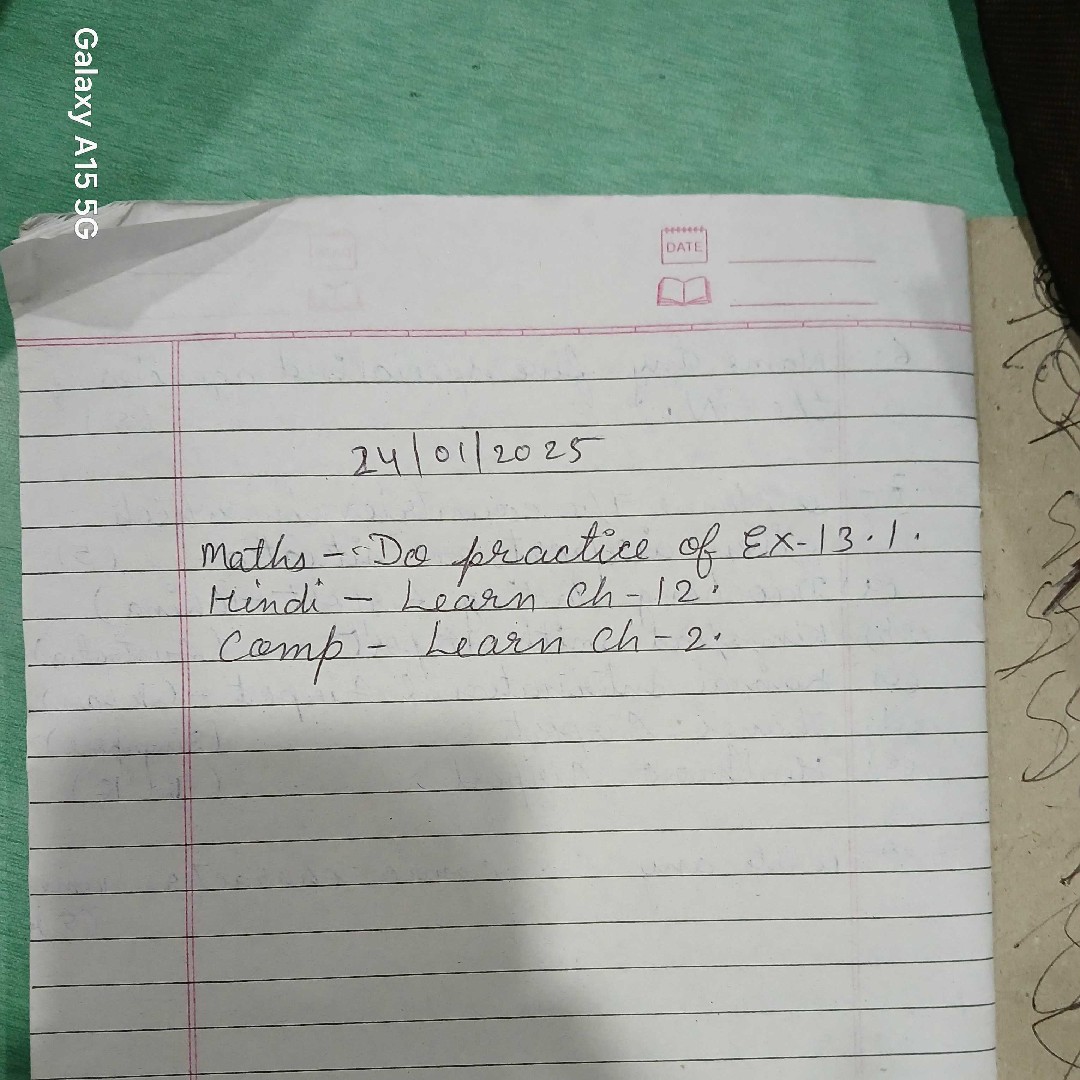 Galaxy A15 5G
DATE
24/01/2025
Maths - Do practice of Ex-13.1.
Hindi - Learn Ch-12.
Comp - Learn Ch-2.